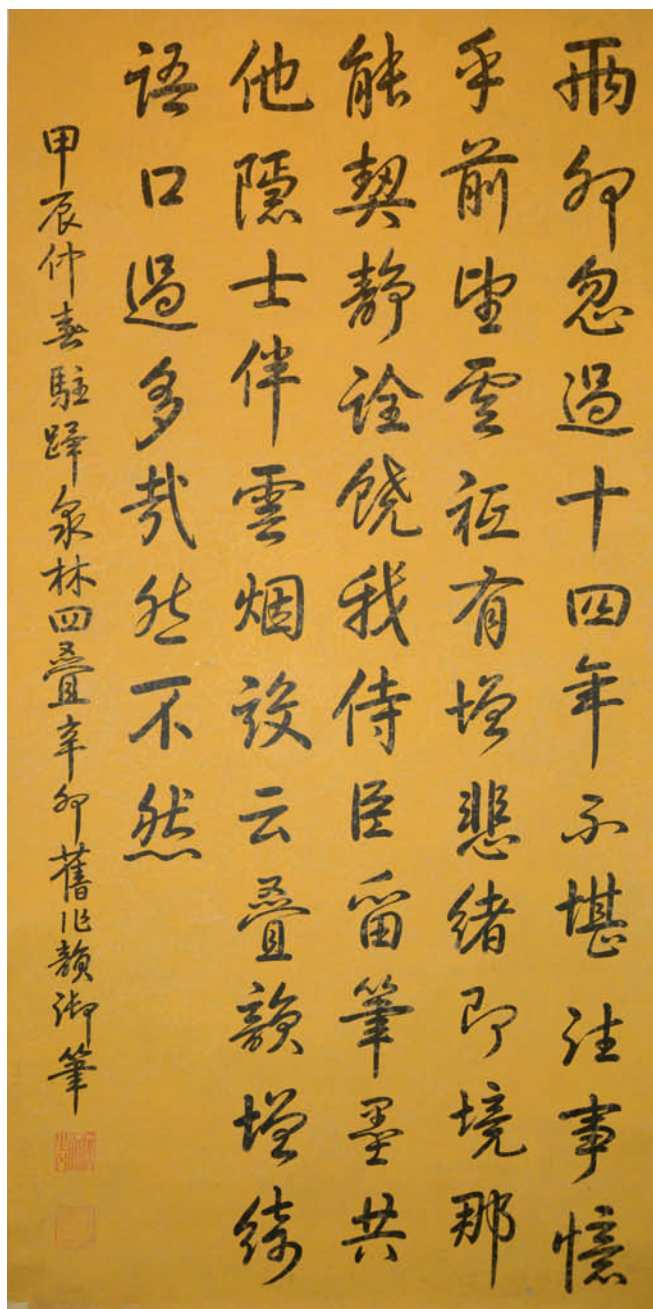 兩卯忽過十四年不堪往事憶
乎前望雲祗有增悲緒即境那
能契靜詮饒我侍臣留筆墨共
他隱士伴雲烟設云叠韻增綺
語口過多哉然不然
甲辰仲春駐蹕泉林四叠辛卯舊作韻御筆